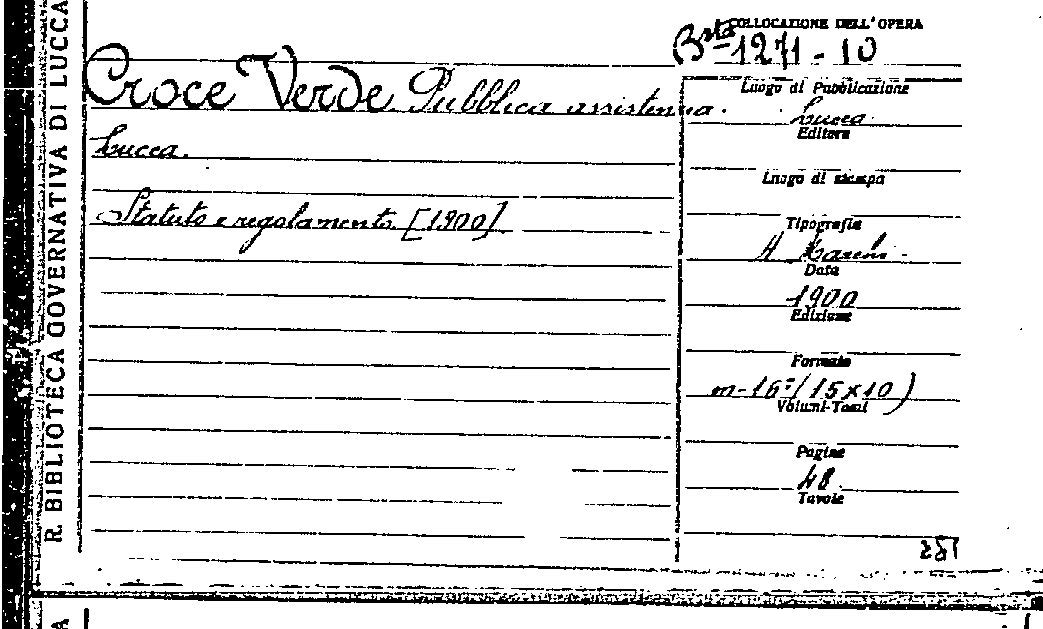 R. BIBLIOTECA GOVERNATIVA DI LUCCA
COLLOCAZIONE DELL'OPERA
Bsta 1271-10
Croce Verde Pubblica assistenza.
Lucca.
Statuto e regolamento [1900]
Luogo di Pubblicazione
Lucca
Editore
Luogo di stampa
Tipografia
A.
Data
1900
Edizione
Formato
m-16º (15x10)
Volumi-Tomi
Pagine
48
Tavole